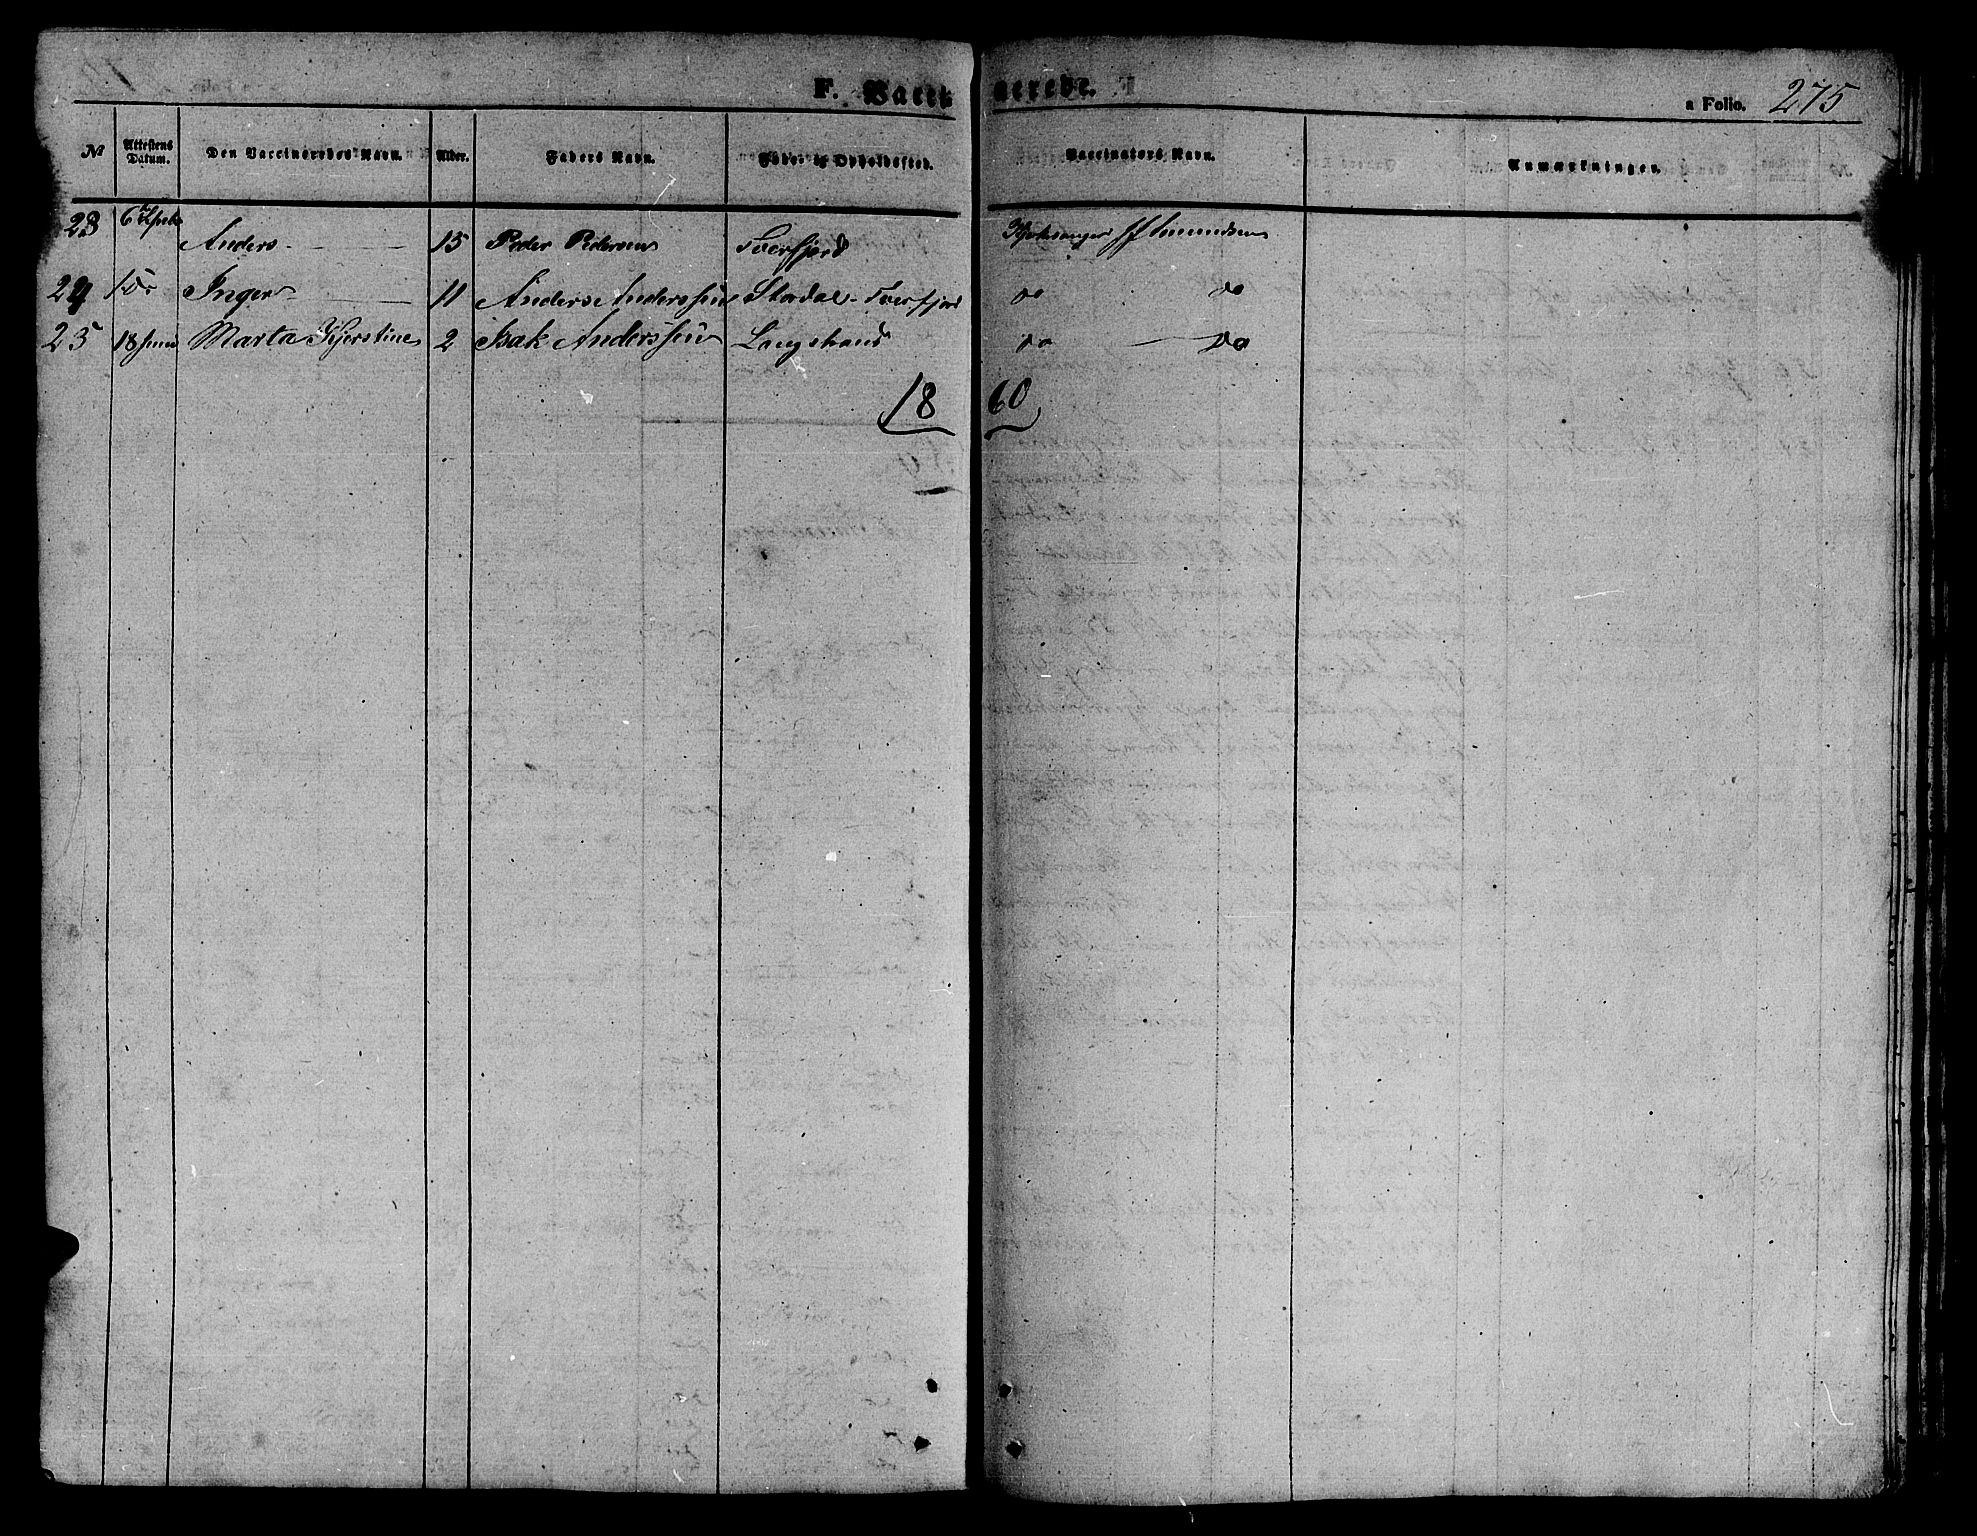 F. Vaccinerede.
a Folio. 275
No Attestens Datum. Den Vaccineredes Navn. Alder. Faders Navn. Føde- og Opholdssted. Vaccinators Navn. Anmærkninger.
23 6 Anders 15 Peder Pedersen Tverfjord Kirkesanger Amundsen
24 10 Inger 11 Anders Anderssen Stordal - Tverfjord do do
25 18 Juni Marta Kjerstine 2 Isak Anderssen Langstrand do do
1860